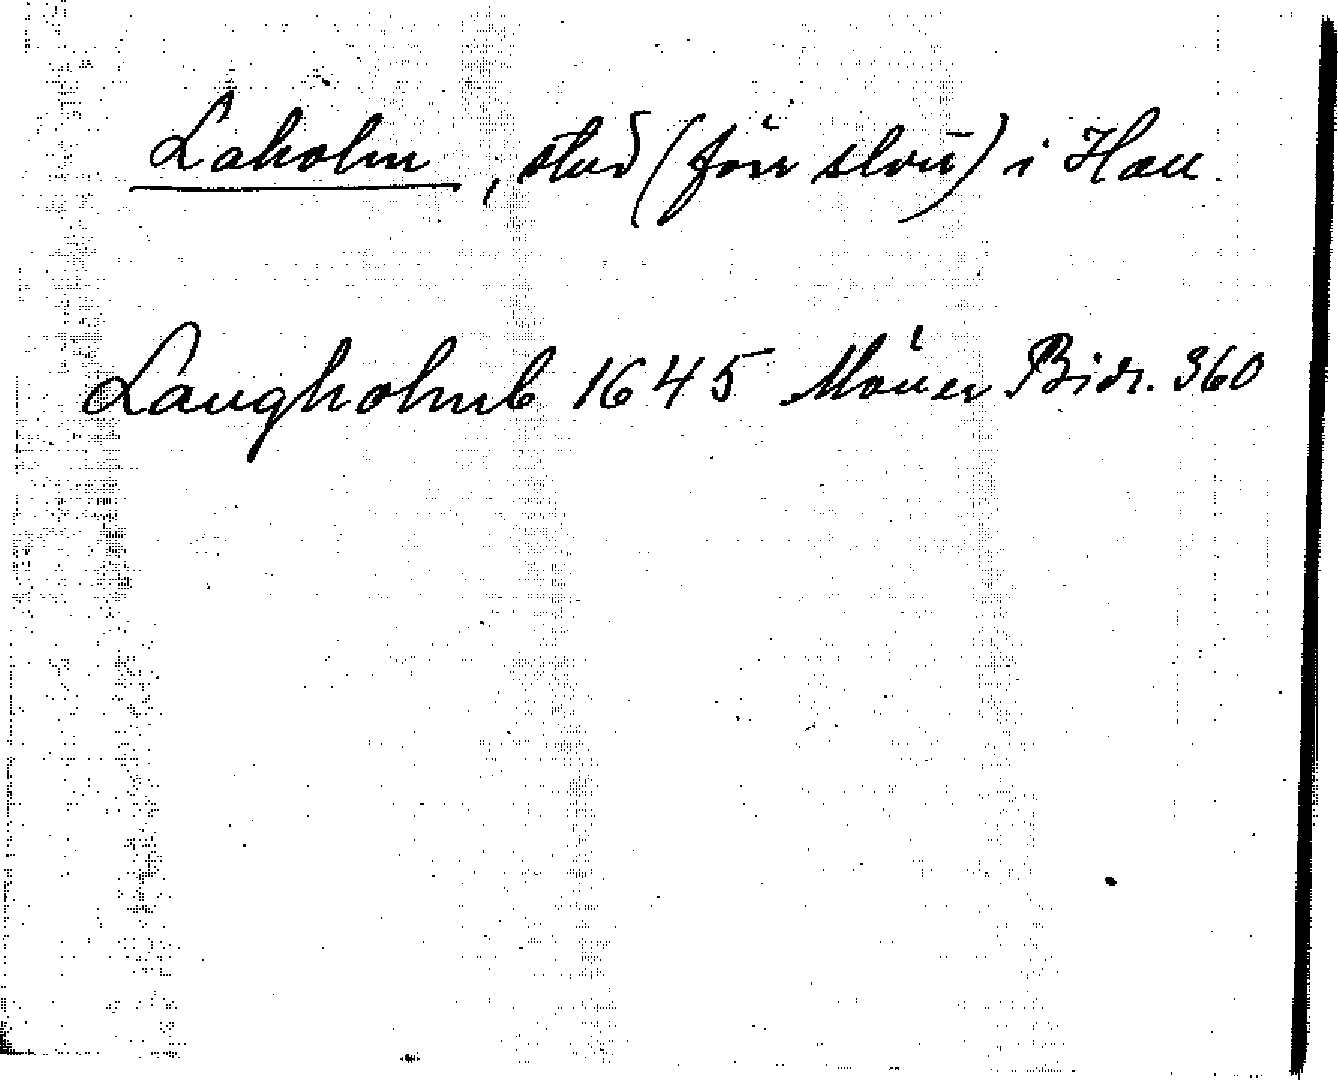 Laholm, stad (förr slott) i Hall.
Laugholmb 1645 Bidr. 360